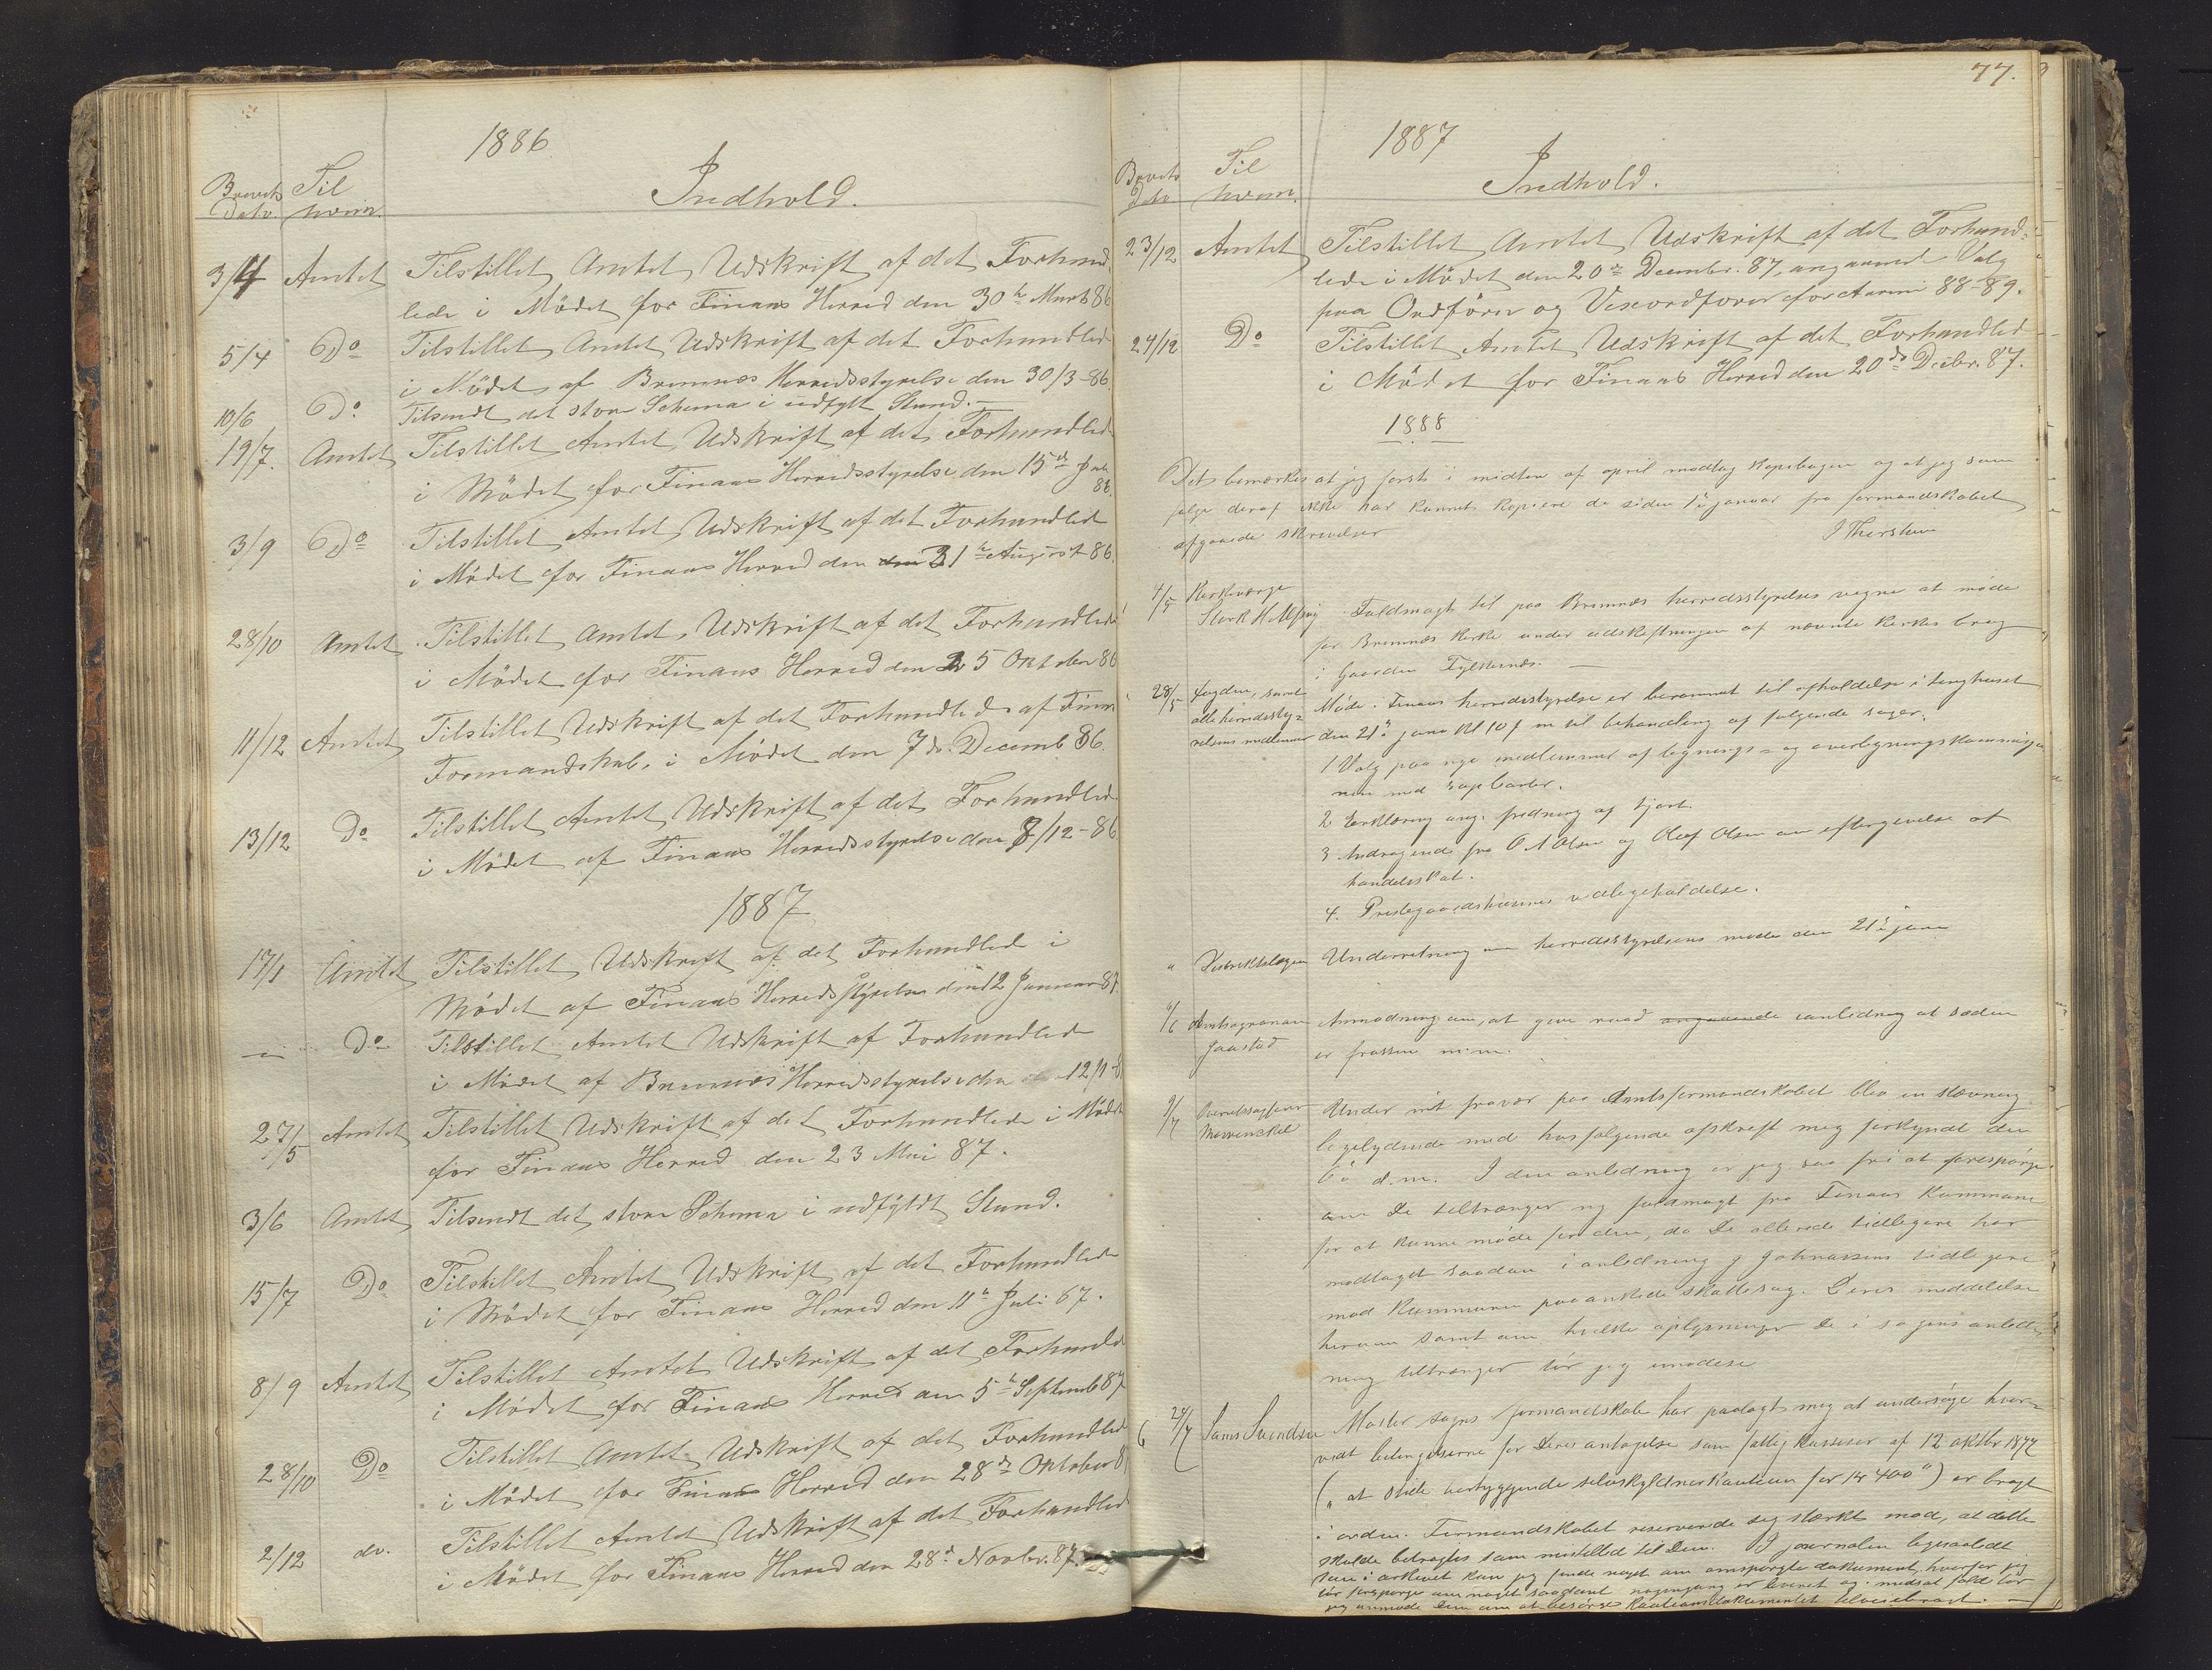 1886
Brevets Dato
Til hvem.
Indhold.
3/4 Amtet Tilstillet Amtet Udskrift af det Forhand-
lede i Mödet for Finaas Herred den 30te Marts 86
5/4 Do Tilstillet Amtet Udskrift af det Forhandlede
i Mödet af Bremnes Herredsstyrelse den 30/3-86.
10/6 Do Tilsendt det store Schema i udfylt Stand.-
19/7. Amtet Tilstillet Amtet Udskrift af det Forhandlede
i Mödet for Finaas Herredsstyrelse den 15de Juli
86.
3/9 Do Tilstillet Amtet Udskrift af det Forhandlede
i Mödet for Finaas Herred den den 31te August 86.
28/10 Amtet Tilstillet Amtet, Udskrift af det Forhandlede
i Mödet for Finaas Herred den 25 Oktober 86
11/12 Amtet Tilstillet Udskrift af det Forhandlede af
Formandskab, i Mödet den 7de Decemb 86.
13/12 Do Tilstillet Amtet Udskrift af det Forhandlede
i Mödet af Finaas Herredsstyrelse den 8/12-86
1887
17/1 Amtet Tilstillet Udskrift af det Forhandlede i
Mödet af Finaas Herredsstyrelse den 12 Januar 87.
Do Tilstillet Amtet Udskrift af Forhandlede
i Mödet af Bremnes Herredsstyrelse den 12/1
27/5 Amtet Tilstillet Udskrift af det Forhandlede i Mödet
for Finaas Herred den 23 Mai 87.
3/6 Amtet Tilsendt det store Schema i udfyldt Stand.
15/7 Do Tilstillet Amtet Udskrift af det Forhandlede
i Mödet for Finaas Herred den 11te Juli 87.
8/9 Amtet Tilstillet Amtet Udskrift af det Forhandlede
i Mödet for Finaas Herred den 5te Septemb 87
28/10 Do Tilstillet Amtet Udskrift af det Forhandlede
i Mödet for Finaas Herred den 28de Oktober
2/12 do. Tilstillet Amtet Udskrift af det Forhandlede
i Mödet for Finaas Herred den 28d Novbr. 87.
77.
1887
Brevets Dato
Til hvem.
Indhold.
23/12 Amtet Tilstillet Amtet Udskrift af det Forhand-
lede i Mödet den 20de Decembr. 87, angaaende Valg
paa Ordförer og Viseordförer for Aarene 88-89.
24/12 Do Tilstillet Amtet Udskrift af det Forhandlede
i Mödet for Finaas Herred den 20de Decbr. 87.
1888
Det bemærkes at jeg först i midten af april modtog kopibogen og at jeg som
følge deraf ikke har kunnet kopiere de siden 1ste januar fra formandskabet
afgaaede skrivelser
4/5 Kirkeværge
Fuldmagt til paa Bremnes herredsstyrelses vegne at møde
for Bremnes kirke under udskiftningen af nævnte kirkes brug
i Gaarden
28/5 Fogden, samt
alle herredssty-
relsens medlemmer
Møde i Finaas herredsstyrelse er berammet til afholdelse i tinghuset
den 21de juni kl 10 f m til behandling af følgende sager:
1 Valg paa nye medlemmer af lignings- og overligningskommissio-
nen med suppleanter.
2 Erklæring ang. fredning af hjort.
3 Andragende fra O A Olsen og Olaf Olsen om eftergivelse af
handelsskat.
4. Prestegaardshusenes vedligeholdelse.
" Distriktslægen Underretning om herredsstyrelsens møde den 21de juni
6/6 Amtsagronom
Jaastad
Anmodning om, at give raad angaaende i anledning at sæden
er frossen m.m.
9/7 Overretssagfører
Under mit fravær paa Amtsformandskabet blev en stævning
ligelydende med hosfølgende afskrift mig forkyndt den
6te d.m. I den anledning er jeg saa fri at forespørge
om De tiltrænger ny fuldmagt fra Finaas Kommune
for at kunne møde for den, da De allerede tidligere har
modtaget saadan i anledning J Johnassens tidligere
mod Kommunen paaankede skattesag. Deres meddelelse
herom samt om hvilke oplysninger De i sagens anled-
ning tiltrænger tør jeg imødese
6 24/7 Lars Svendsen Moster sogns formandskab har paalagt mig at undersøge hvor-
vidt betingelserne for Deres antagelse som fattigkasserer af 12 oktbr 1877
(" at stille betryggende selvskyldnerkaution for kr 400 ") er bragt
i orden. Formandskabet reserverede sig stærkt mod, at dette
skulde betragtes som mistillid til Dem. I journalen ligesaalidt
som i arkivet kan jeg finde noget om omspurgte dokument, hvorfor jeg
tør forespørge om noget saadant nogengang er leveret og i modsat fald tør
jeg anmode Dem om at besørge kautionsdokumentet tilveiebragt.